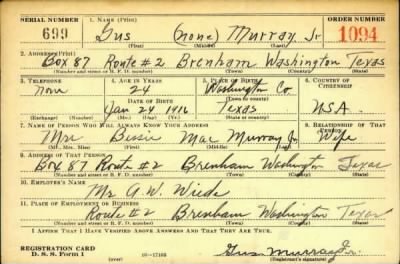 SERIAL NUMBER 1. NAME (Print) ORDER NUMBER
699 Gus (none) Murray Jr 1094
(First) (Middle) (Last)
2. ADDRESS (Print)
Box 87 Route #2 Brenham Washington Texas
(Number and street or R. F. D. number) (Town) (County) (State)
3. TELEPHONE 4. AGE IN YEARS 5. PLACE OF BIRTH 6. COUNTRY OF CITIZENSHIP
None 24 Washington Co
DATE OF BIRTH (Town or county)
Jan 24 1916 Texas U.S.A.
(Mo.) (Day) (Yr.) (State or country)
7. NAME OF PERSON WHO WILL ALWAYS KNOW YOUR ADDRESS 8. RELATIONSHIP OF THAT PERSON
Mrs Bessie Mae Murray Jr Wife
(Mr., Mrs., Miss) (First) (Middle) (Last)
9. ADDRESS OF THAT PERSON
Box 87 Route #2 Brenham Washington Texas
(Number and street or R. F. D. number) (Town) (County) (State)
10. EMPLOYER'S NAME
Mr A. W.
11. PLACE OF EMPLOYMENT OR BUSINESS
Route #2 Brenham Washington Texas
(Number and street or R. F. D. number) (Town) (County) (State)
I AFFIRM THAT I HAVE VERIFIED ABOVE ANSWERS AND THAT THEY ARE TRUE.
REGISTRATION CARD
D. S. S. Form 1 (over) Gus Murray Jr.
(Registrant's signature)